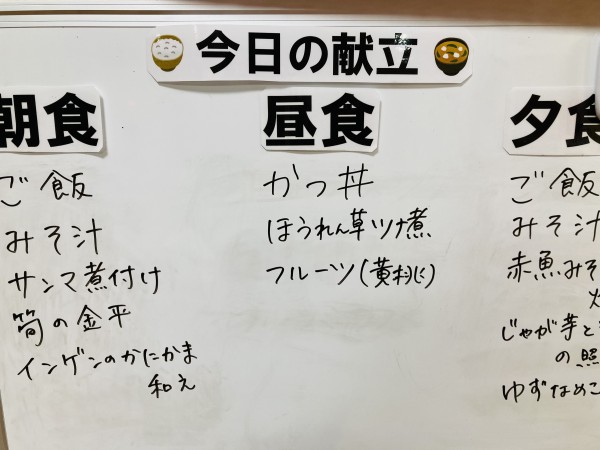 今日の献立
朝食
ご飯
みそ汁
サンマ煮付け
筍の金平
インゲンのかにかま
和え
昼食
かつ丼
ほうれん草ツナ煮
フルーツ(黄桃)
夕食
ご飯
みそ汁
赤魚みそ
じゃが芋と
の照
ゆずなめこ